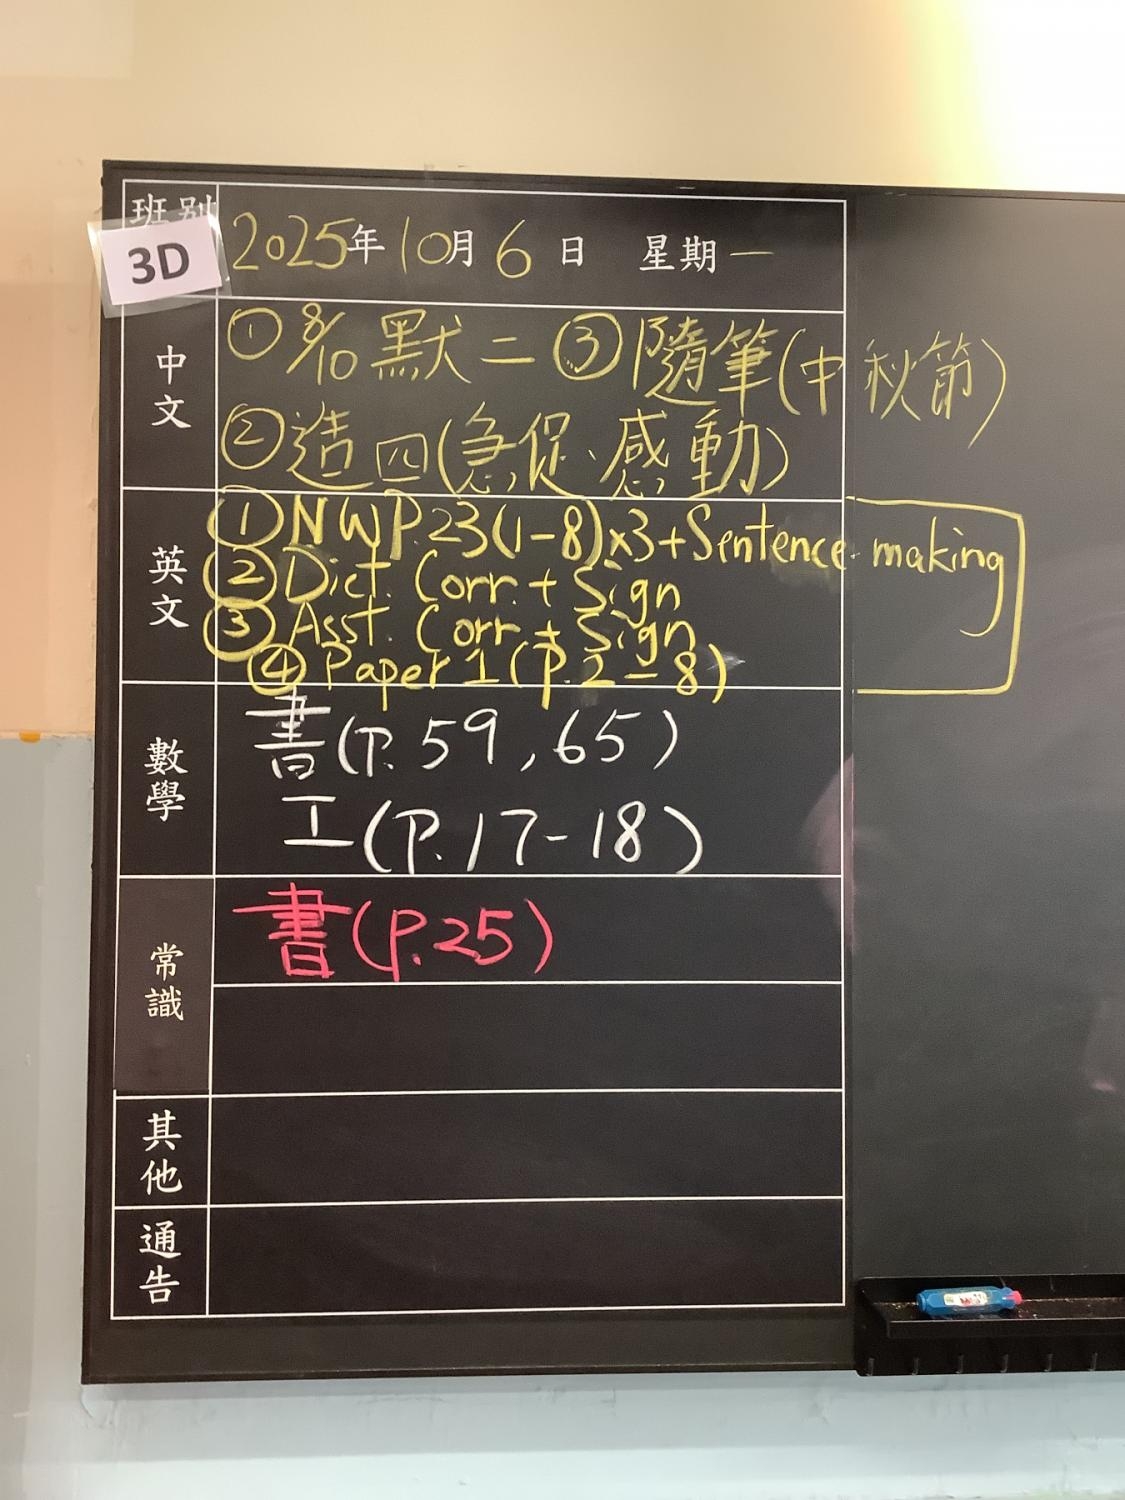 班別
3D
2025年10月6日 星期一
中文
①8/10 默二 ③隨筆(中秋節)
②造四(急促、感動)
英文
①NWP.23(1-8)x3+Sentence making
②Dict. Corr. + Sign
③Asst. Corr. + Sign
④Paper 1(P.2-8)
數學
書(P.59,65)
工(P.17-18)
常識
書(P.25)
其他
通告